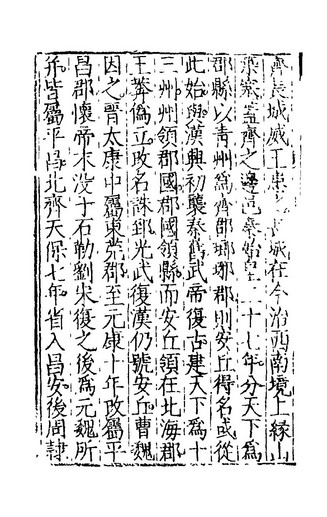 齊長城威王
城在今治西南境上緣山
築寨蓋齊之邊邑秦始皇二十七年分天下爲
郡縣以青州爲齊郡瑯琊郡則安丘得名或從
此始與漢興初襲秦舊武帝復古建天下爲十
三州州領郡國郡國領縣而安丘領在北海郡
王莽僞立改名誅郅光武復漢仍號安丘曹魏
因之晉太康中屬東莞郡至元康十年改屬平
昌郡懷帝末没于石勒劉宋復之後爲元魏所
并皆屬平昌北齊天保七年省入昌安後周隸